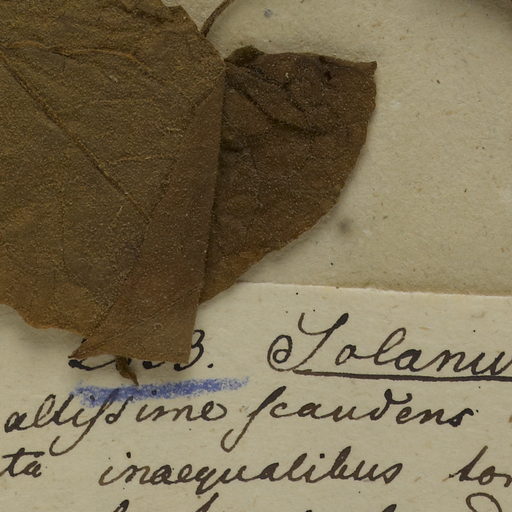 3. Solanu
altissime scandens
ta inaequalibus tor